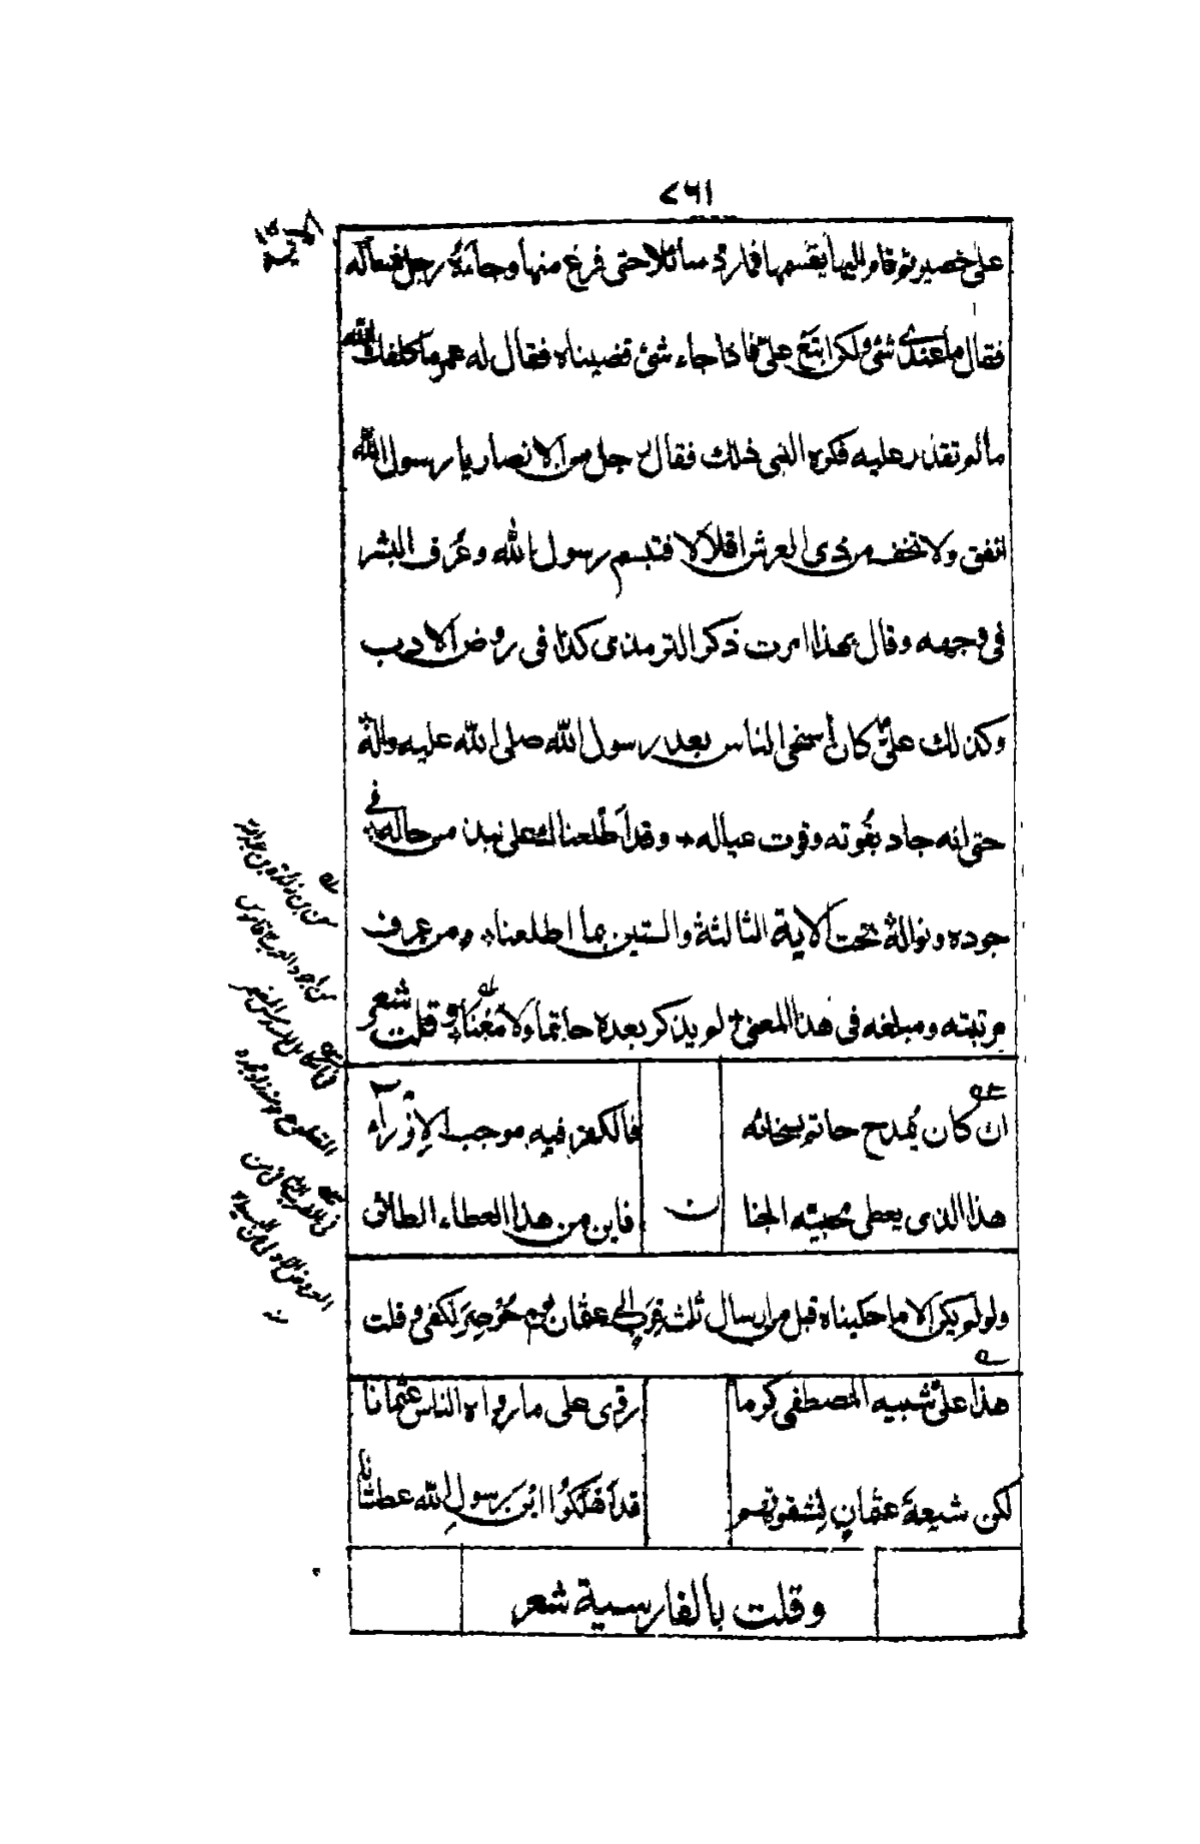 ٧٦١
على حصير ثم قام اليها يقسمها فمارد سائلا حتى فرغ منها وجاءه رجل فسأله
فقال ما عندى شئ ولكن ابتع علىّ فاذا جاء شئ قضيناه فقال له عمر ما كلفك الله
مالم تقدر عليه فكره النبى ذلك فقال رجل من الانصار يا رسول الله
انفق ولا تخف من ذى العرش اقلالا فتبسم رسول الله وعُرف البشر
فى وجهه وقال بهذا امرت ذكر الترمذى كذا فى روض الادب
وكذلك علىّ كان أسخى الناس بعد رسول الله صلى الله عليه وآله
حتى انه جاد بقُوته وقوت عياله وقد أطلعناك على نبذ من حاله فى
جوده ونواله تحت الاية الثالثة والستين بما اطلعنا ومن عرف
مرتبته ومبلغه فى هذا المعنى لم يذكر بعده حاتما ولا مَعْنا وقلت شعر
ان كان يُمدح حاتم بسخائه فالكفر فيه موجب الإزراء
هذا الذى يعطى محبيّه الجنا ن فاين من هذا العطاء الطائى
ولو لم يكن الا ما حكيناه قبل من ارسال ثلث قِرَب الى عثمان وهو حُوصِرَ لكفى وقلت
هذا علىّ شبيه المصطفى كرما روّى على ما رواه الناس عثمانا
لكن شيعة عثمانٍ لِشقوتهم قد أهلكوا ابْنَ رسولِ الله عطشانا
وقلت بالفارسية شعر